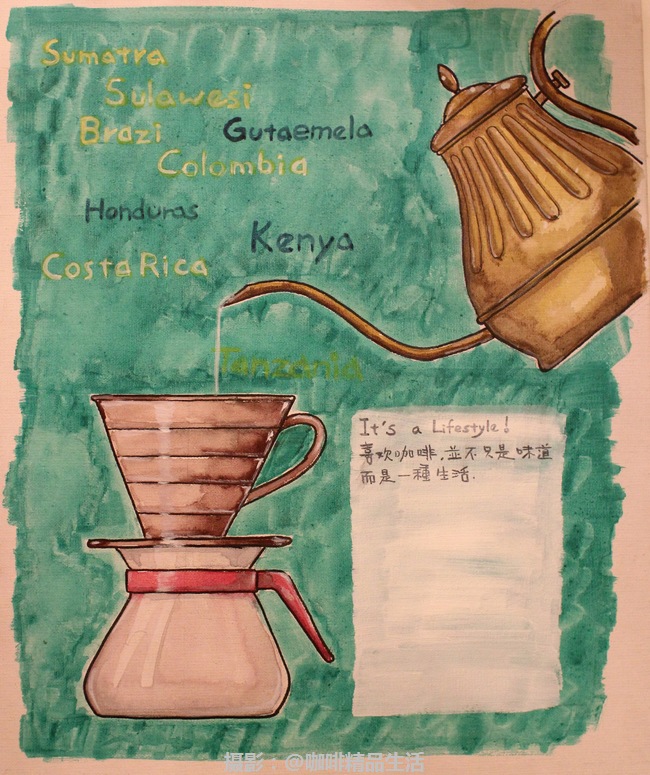 Sumatra
Sulawesi
Brazi
Gutaemela
Colombia
Honduras
Kenya
Costa Rica
Tanzania
It's a Lifestyle!
喜欢咖啡,並不只是味道
而是一種生活.
摄影：@咖啡精品生活